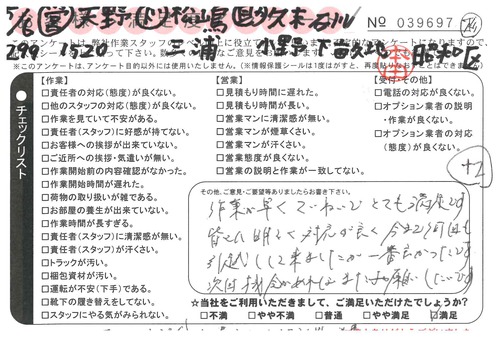 5/6 (富)天野(  )杉嶋
No 039697
299 1520 三浦 小野 下 昭和区
このアンケートは、弊社作業スタッフの
※このアンケートは、アンケート目的以外には使用いたしません。(※情報保護シールは1度はがすと、再度貼りなおすことはできません)
チェックリスト
【作業】
□責任者の対応(態度)が良くない。
□他のスタッフの対応(態度)が良くない。
□作業を見ていて不安がある。
□責任者(スタッフ)に好感が持てない。
□お客様への挨拶が出来ていない。
□ご近所への挨拶・気遣いが無い。
□作業開始前の内容確認がなかった。
□作業開始時間が遅れた。
□荷物の取り扱いが雑である。
□お部屋の養生が出来ていない。
□作業時間が長すぎる。
□責任者(スタッフ)に清潔感が無い。
□責任者(スタッフ)が汗くさい。
□トラックが汚い。
□梱包資材が汚い。
□運転が不安(下手)である。
□靴下の履き替えをしてない。
□スタッフにやる気がみられない。
【営業】
□見積もり時間に遅れた。
□見積もり時間が長い。
□営業マンに清潔感が無い。
□営業マンが煙草くさい。
□営業マンが汗くさい。
□営業態度が良くない。
□営業の説明と作業が一致してない。
【受付・その他】
□電話の対応が良くない。
□オプション業者の説明・作業が良くない。
□オプション業者の対応(態度)が良くない。
+2
その他、ご意見・ご要望等ありましたらお書き下さい。
作業が早くていねいでとても満足です
皆さん明るく対応が良く今まで何回も
引越しして来ましたが一番良かったです
次回機会があればまたお願いしたいです
☆当社をご利用いただきまして、ご満足いただけたでしょうか?
□不満 □やや不満 □普通 □やや満足 □満足